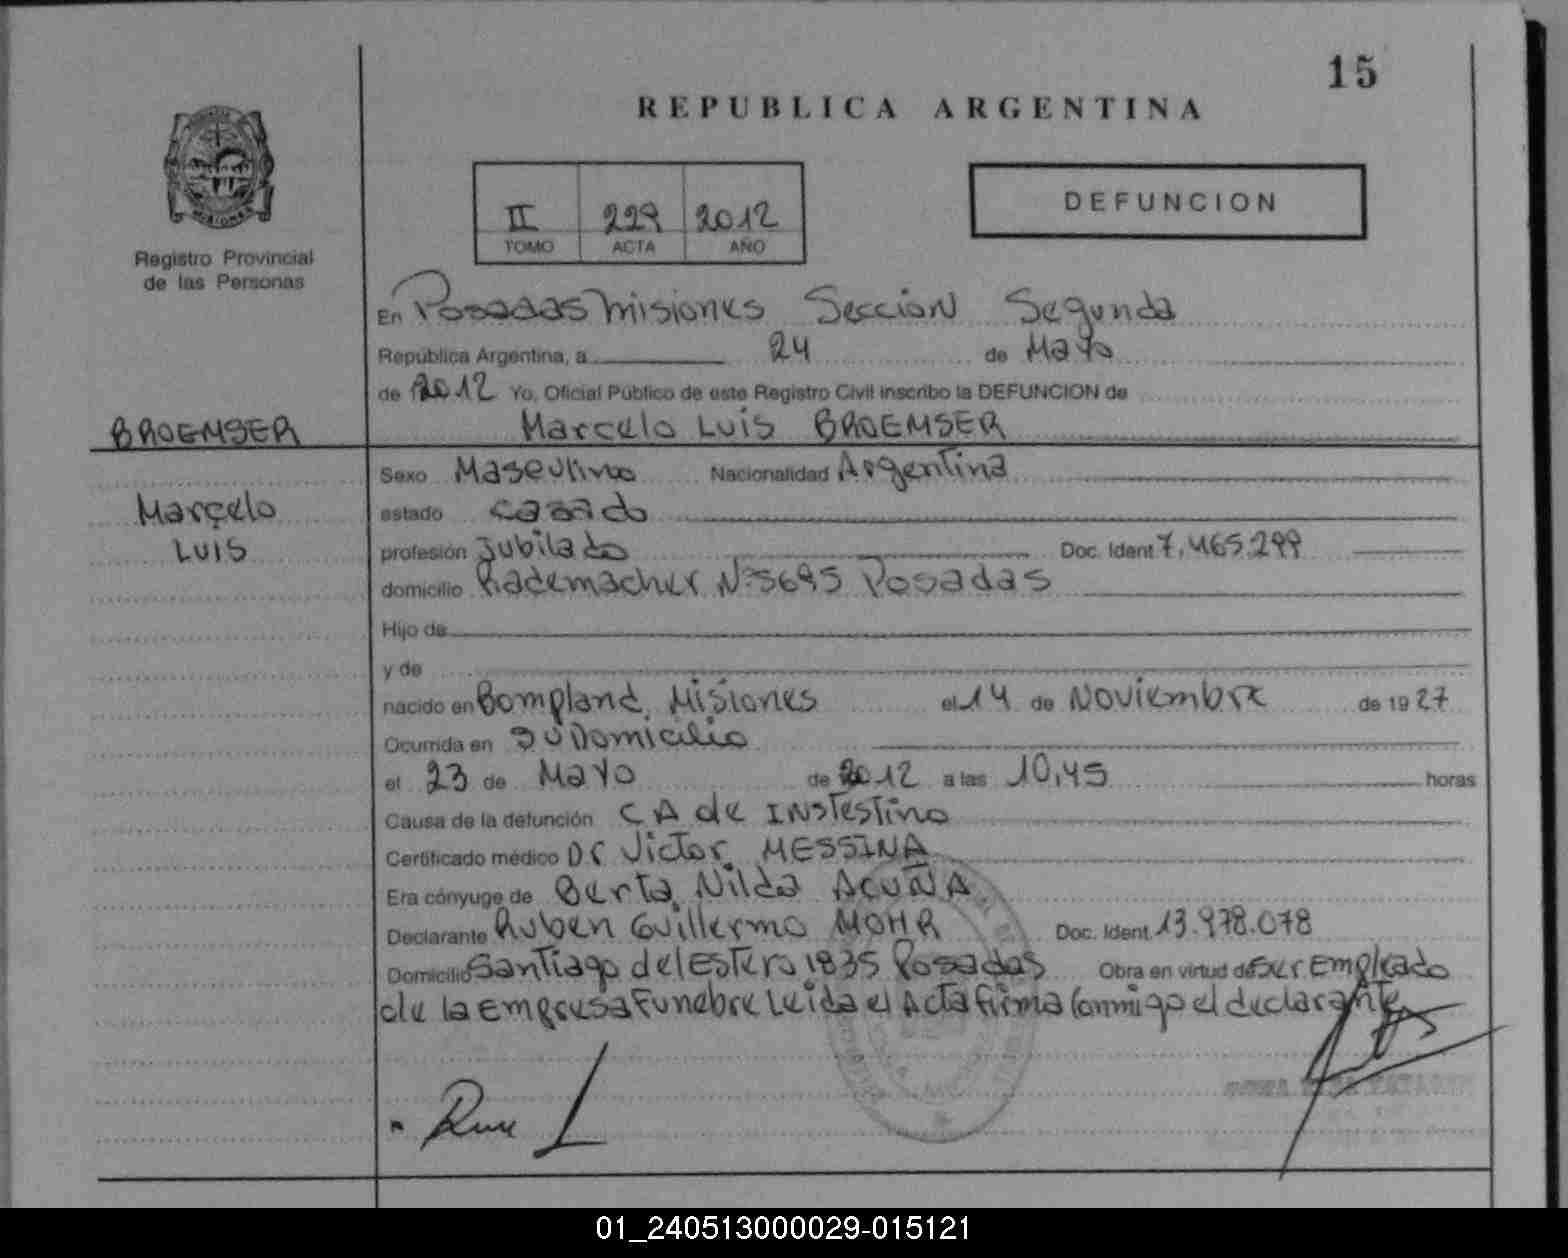 15
REPUBLICA ARGENTINA
II 229 2012
TOMO ACTA AÑO
DEFUNCION
Registro Provincial
de las Personas
En Posadas Misiones Seccion Segunda
República Argentina, a 24 de Mayo
de 2012 Yo, Oficial Público de este Registro Civil inscribo la DEFUNCION de
BROEMSER Marcelo Luis BROEMSER
Sexo Masculino Nacionalidad Argentina
Marcelo estado casado
LUIS profesión Jubilado Doc. Ident 7.465.299
domicilio Rademacher Nº 5695 Posadas
Hijo de
y de
nacido en Bompland, Misiones el 14 de Noviembre de 19 27
Ocurrida en su Domicilio
el 23 de Mayo de 2012 a las 10,45 horas
Causa de la defunción CA de INstestino
Certificado médico Dr Victor MESSINA
Era cónyuge de Berta Nilda ACUÑA
Declarante Ruben Guillermo MOHR Doc. Ident. 13.978.078
Domicilio Santiago del Estero 1835 Posadas Obra en virtud de ser Empleado
de la Empresa Funebre Leida el Acta firma Conmigo el declarante
01_240513000029-015121